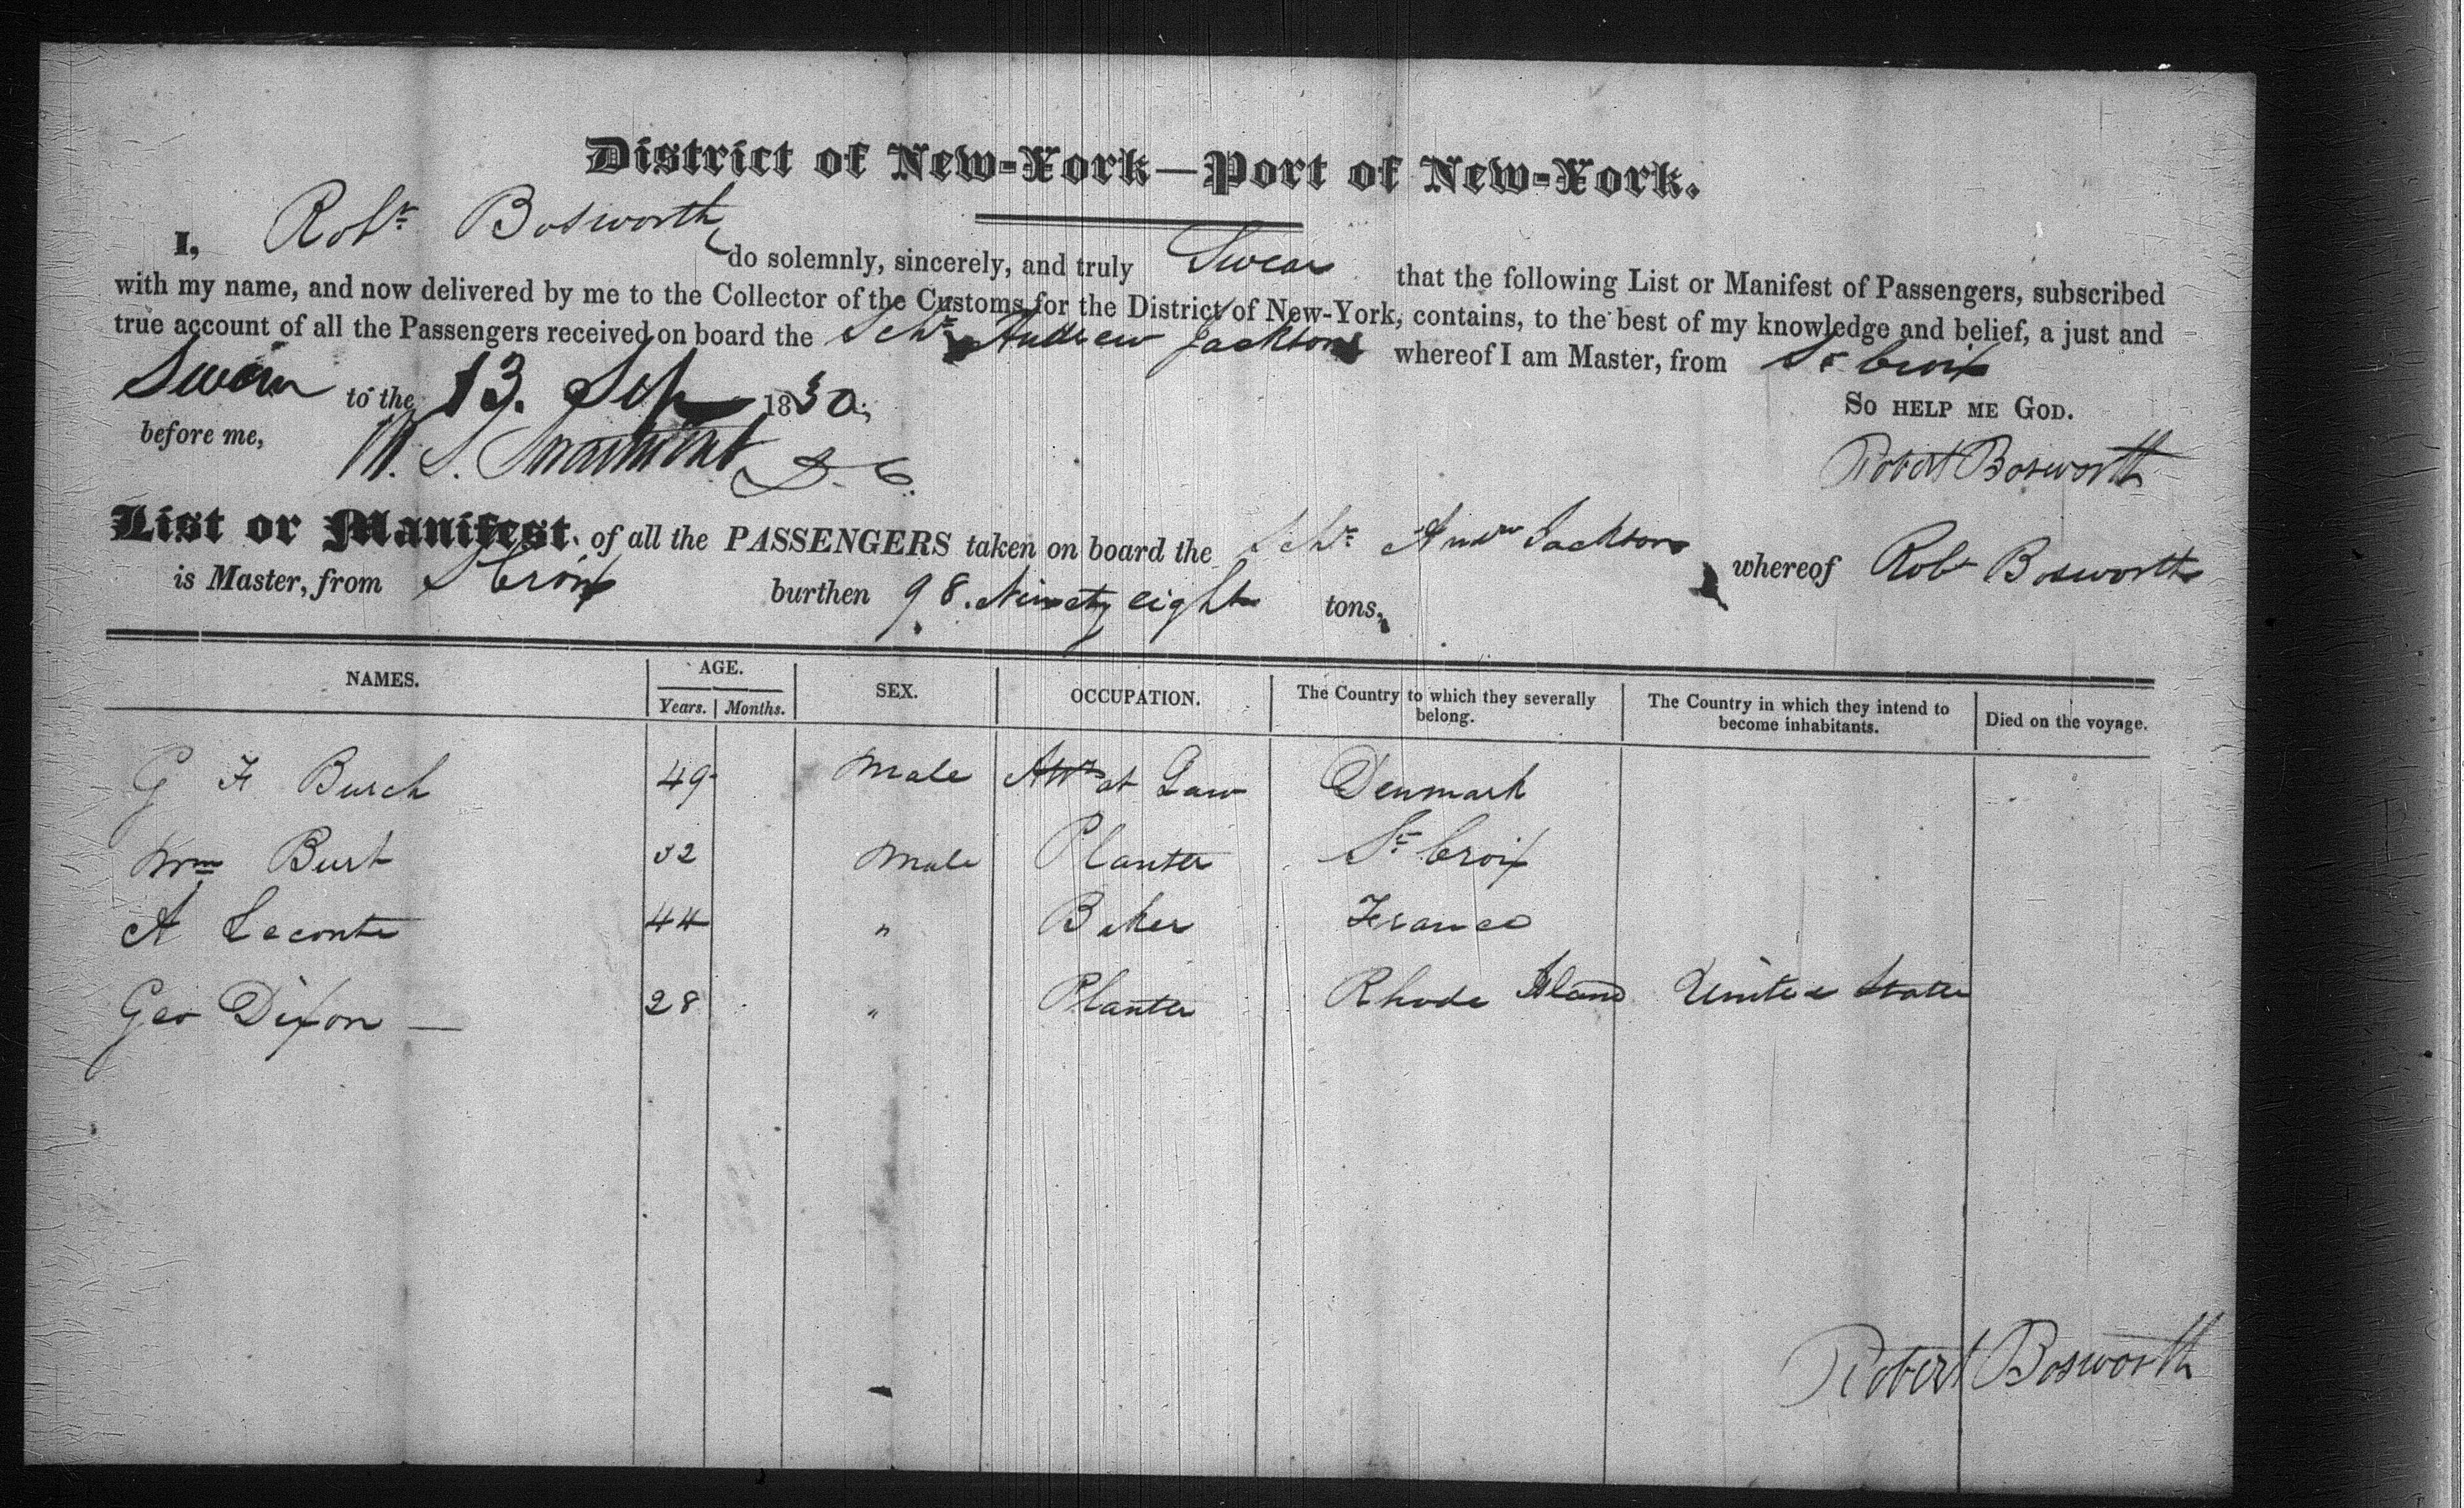 District of New-York—Port of New-York.
I, Robt Bosworth do solemnly, sincerely, and truly Swear that the following List or Manifest of Passengers, subscribed
with my name, and now delivered by me to the Collector of the Customs for the District of New-York, contains, to the best of my knowledge and belief, a just and
true account of all the Passengers received on board the Schr Andrew Jackson whereof I am Master, from St Croix
Sworn to the 13. Sep 1830,
So help me God.
before me,
W. S. D. C.
Robert Bosworth
List or Manifest, of all the PASSENGERS taken on board the Schr Andw Jackson whereof Robt Bosworth
is Master, from St Croix burthen 98. Ninety eight tons,
NAMES. AGE. SEX. OCCUPATION. The Country to which they severally belong. The Country in which they intend to become inhabitants. Died on the voyage.
Years. Months.
G F Burch 49 Male Atty at Law Denmark
Wm Burt 32 Male Planter St Croix
A Leconte 44 " Baker France
Geo Dixon — 28 " Planter Rhode Island United States
Robert Bosworth